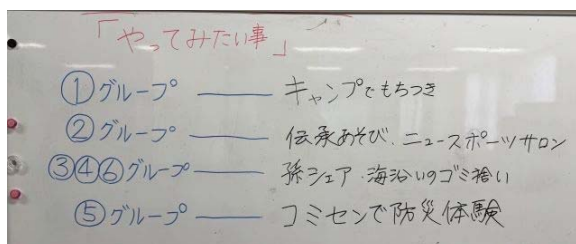 「やってみたい事」
①グループ ―― キャンプでもちつき
②グループ ―― 伝承あそび、ニュースポーツサロン
③④⑥グループ ―― 孫シェア・海沿いのゴミ拾い
⑤グループ ―― コミセンで防災体験